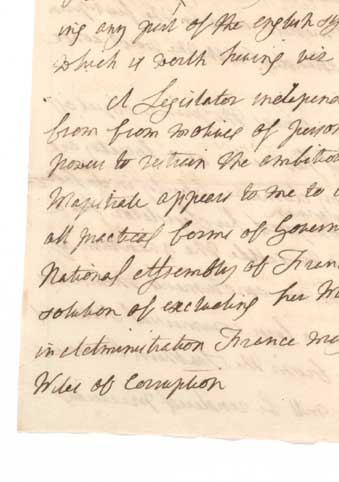 ing any part of the english sy
which is worth having viz
A Legislator independ
from from motives of person
power to restrain the ambition
Magistrate appears to me to
all practical forms of Govern
National Assembly of Fran
solution of excluding her M
in Administration France may
Wiles of Corruption